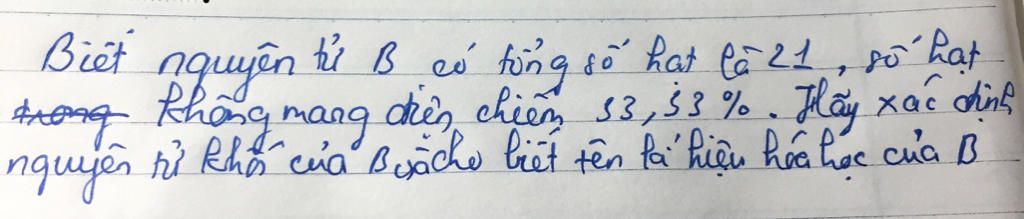 Biết nguyên tử B có tổng số hạt là 21, số hạt
trong không mang điện chiếm 33,33%. Hãy xác định
nguyên tử khối của B và cho biết tên kí hiệu hóa học của B